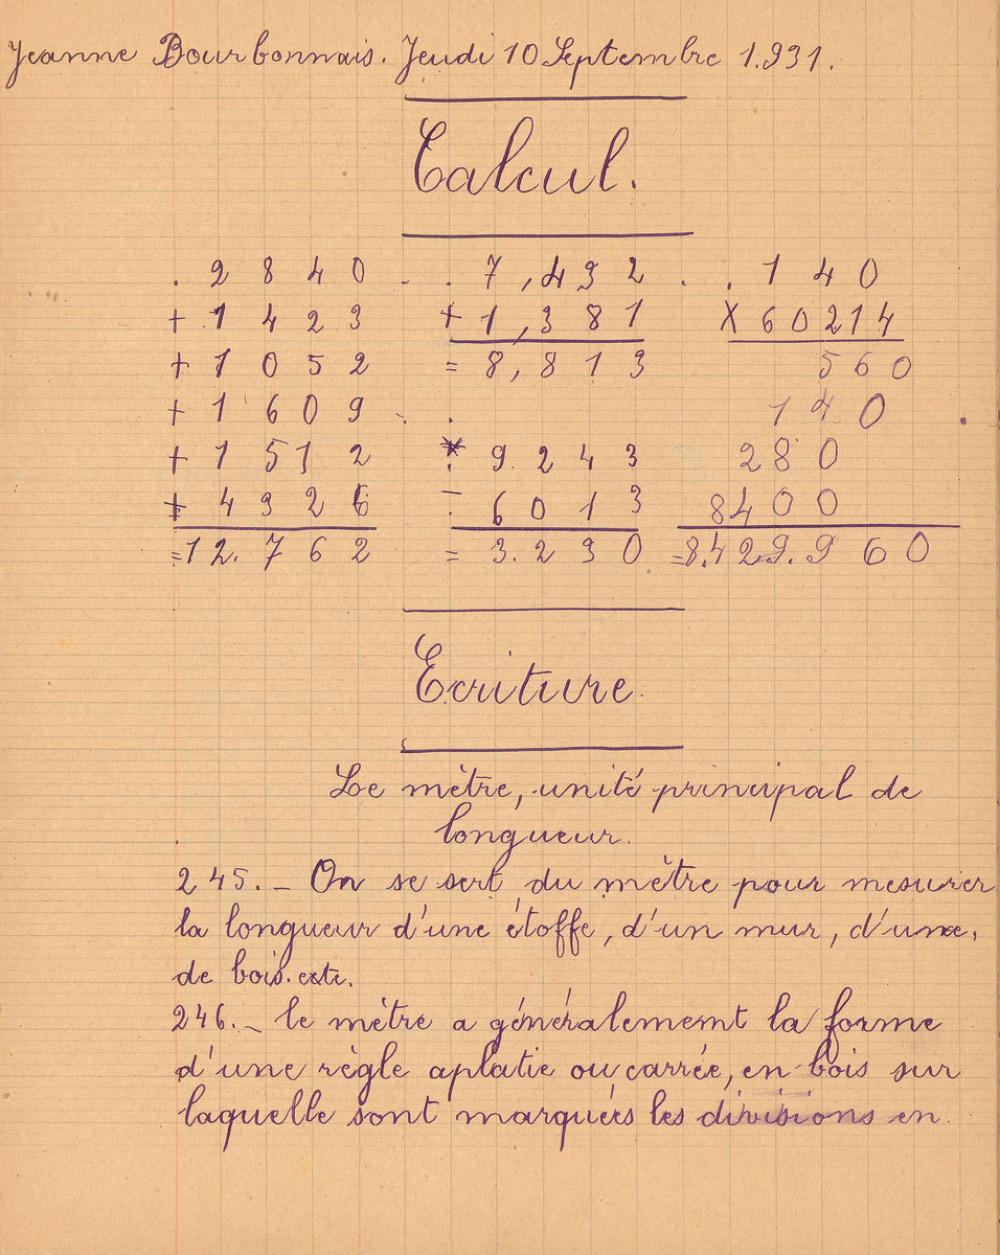 Jeanne Bourbonnais. Jeudi 10 Septembre 1.931.
Calcul.
. 2 8 4 0 . . 7 , 4 3 2 . . 1 4 0
+ 1 4 2 3 + 1 , 3 8 1 X 6 0 2 1 4
+ 1 0 5 2 = 8, 8 1 3 5 6 0
+ 1 6 0 9 . . 1 4 0 .
+ 1 5 1 2 * 9 2 4 3 2 8 0
+ 4 9 2 6 - 6 0 1 3 8 4 0 0
= 1 2. 7 6 2 = 3. 2 3 0 . = 8.4 2 9. 9 6 0
Ecriture.
Le mètre, unité principal de
longueur.
245. _ On se sert du mètre pour mesurer
la longueur d'une étoffe, d'un mur, d'une,
de bois. exte.
246. _ le mètre a généralement la forme
d'une règle aplatie ou carrée, en bois sur
laquelle sont marquées les divisions en